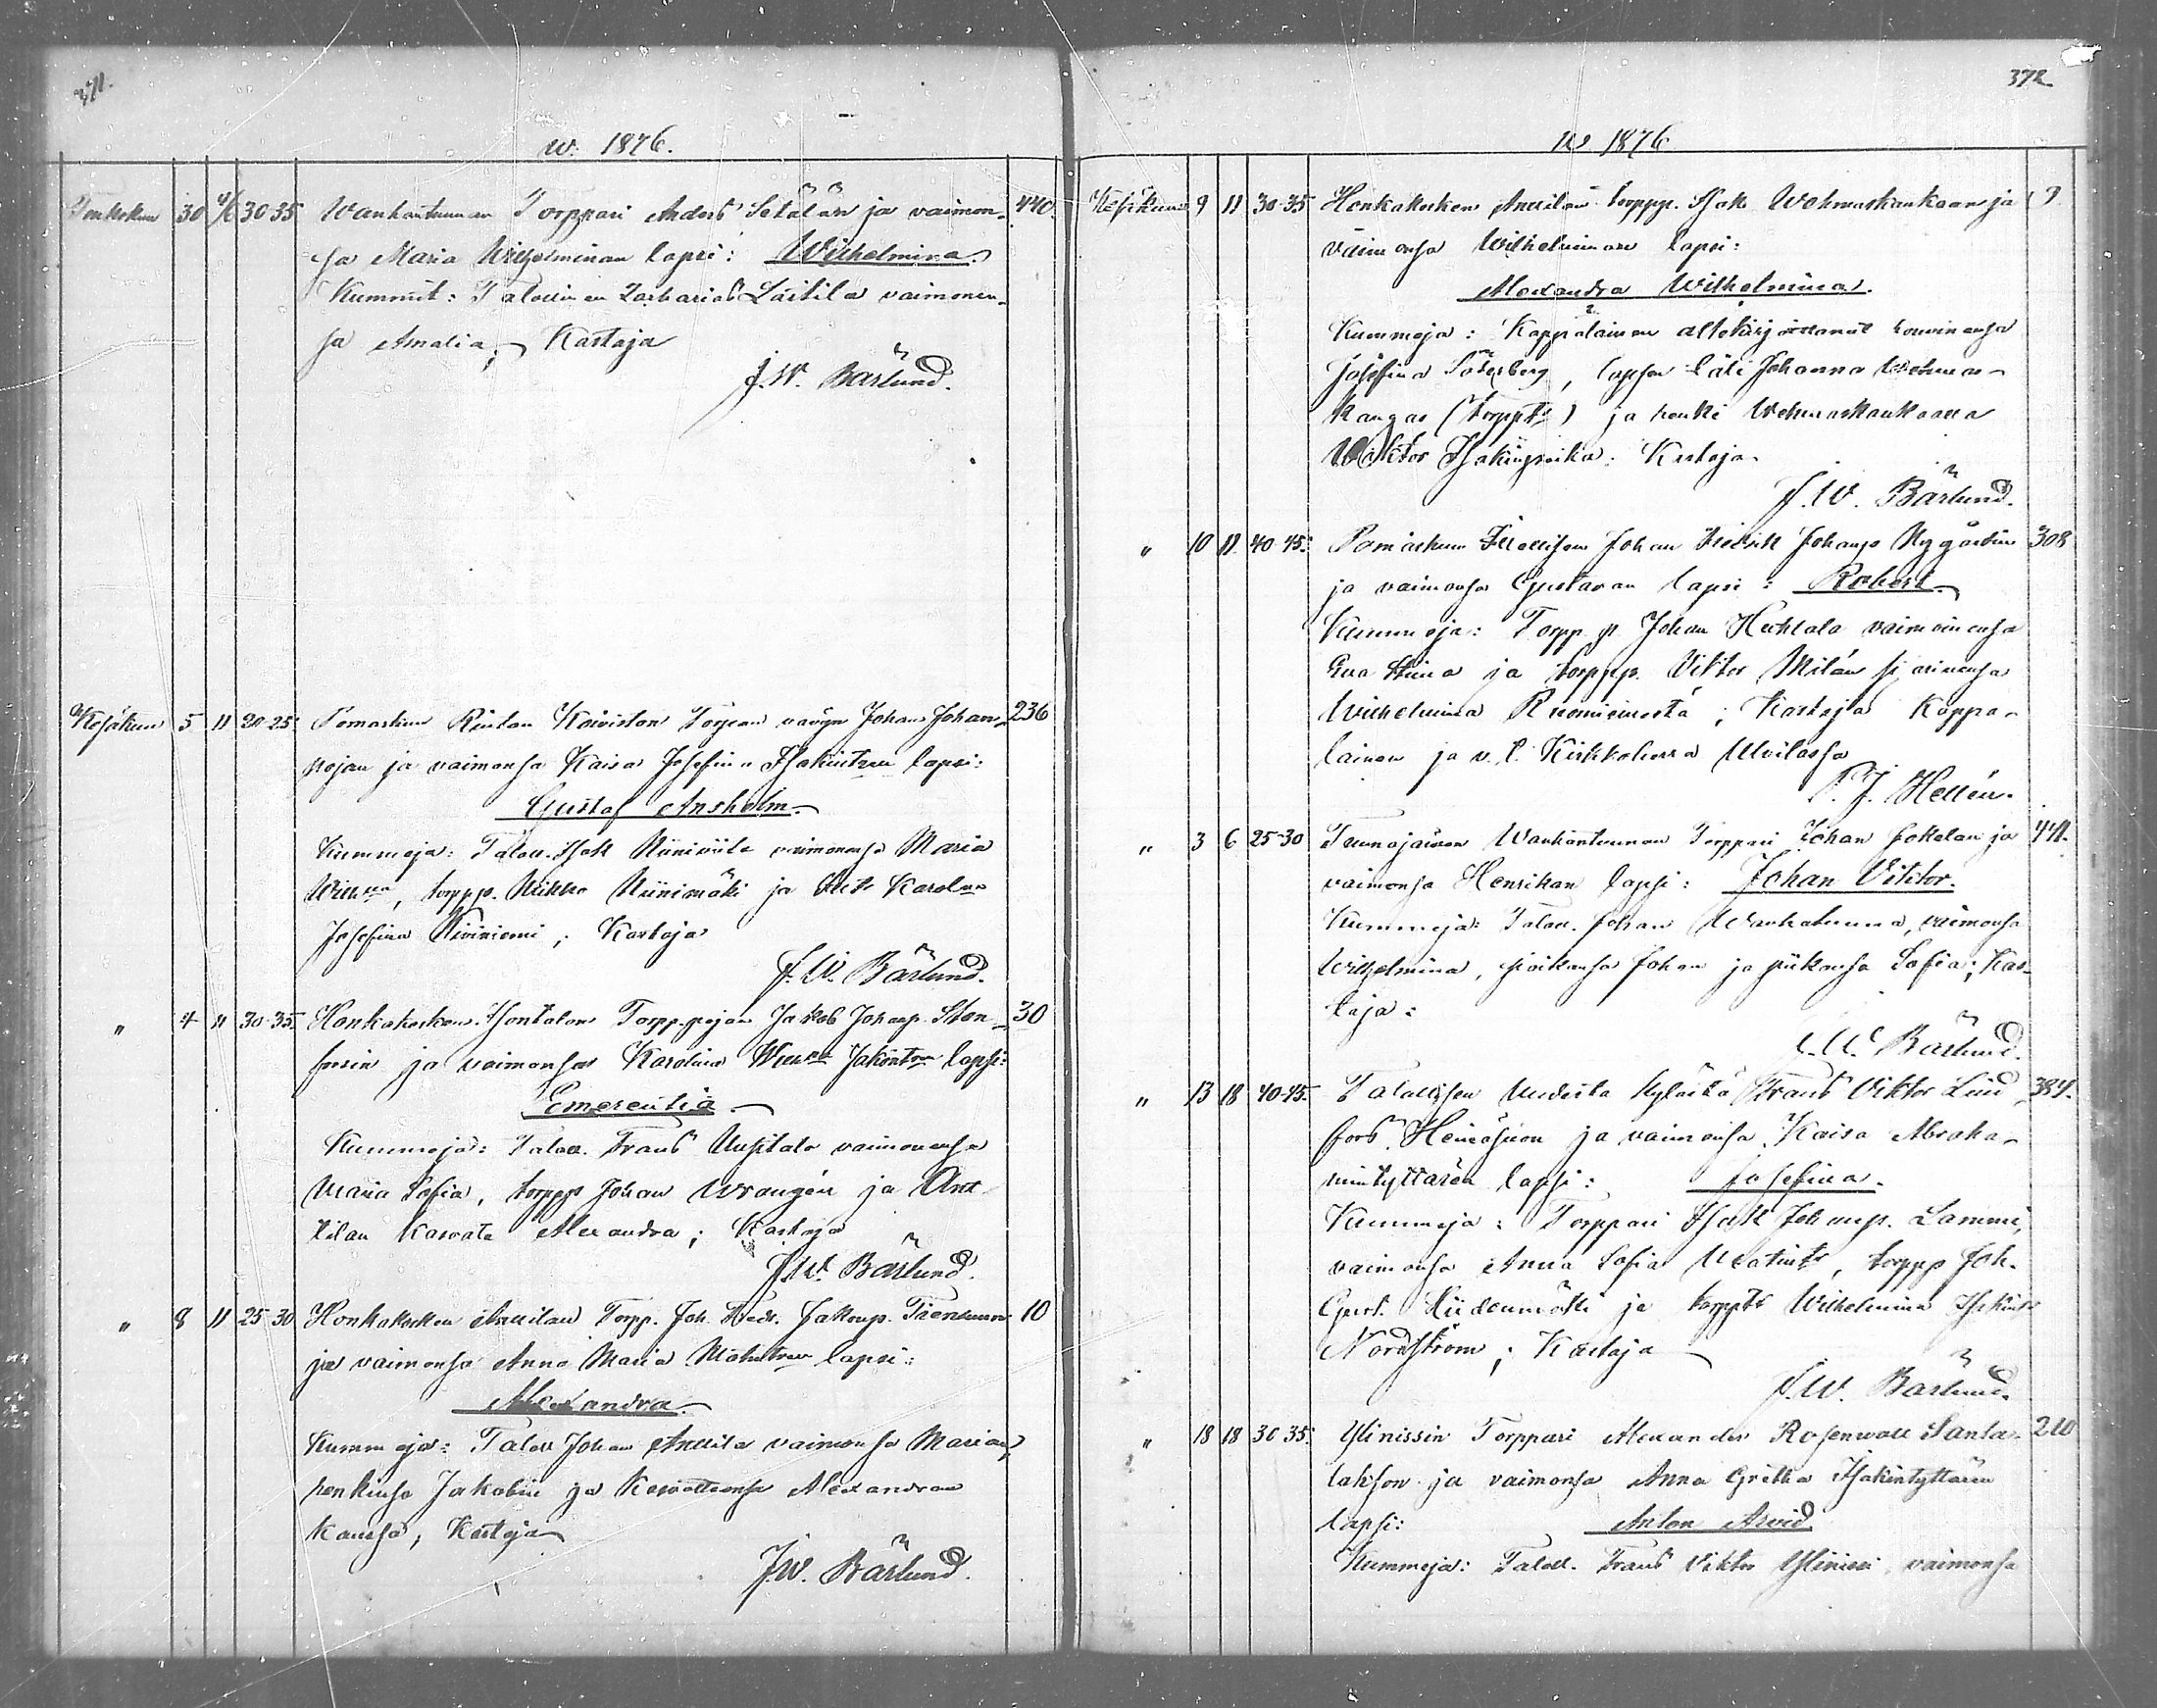 371.
w. 1876.
Toukokuu 30 4/6 30-35 Wanhantunnan Torppari Anders Setälän ja vaimon- 440.
sa Maria Wilhelminan lapsi: Wilhelmina.
Kummit: Talollinen Zacharias Laitila vaimonen-
sa Amalia; Kastaja
J. W. Bärlund.
Kesäkuu 5 11 20-25. Pomarkun Koiviston Johan Johan- 236
pojan ja vaimonsa Kaisa Josefina Isakintren lapsi:
Gustaf Anshelm
Kummeja: Talol. Isak Niiniviita vaimonensa Maria
torpp. Mikko Niinimäki ja Karolna
Josefina Niiniemi; Kastaja
J. W. Bärlund.
" 4 11 30-35. Honkakosken Torpp.pojan Jakob Johanp. Sten- 30
forsin ja vaimonsa Karolina Jakintren lapsi:
Emerentia
Kummeja: Talol. Frans Uusitalo vaimonensa
Maria Sofia, torpp Johan Wrangén ja Ant-
tilan Alexandra; Kastaja
J. W. Bärlund.
" 8 11 25-30 Honkakosken Anttilan Torpp. Joh. Fredr. Jakonp. 10
ja vaimonsa Anna Maria lapsi:
Alexandra.
Kummeja: Talol Johan Anttila vaimonsa Marian,
renkinsa Jakobin ja Alexandran
kanssa; Kastaja
J. W. Bärlund.
372.
w 1876
Kesäkuu 9 11 30-35 Honkakosken Anttilan torpp. Isak Wehmaskankaan ja 9
vaimonsa Wilhelminan lapsi:
Alexandra Wilhelmina.
Kummeja: Kappalainen allekirjoittanut rouvinensa
Josefina Söderberg, lapsen täti Johanna Wehmas-
kangas (torpptr) ja renki Wehmaskankaalta
Wiktor Isakinpoika. Kastaja
J. W. Bärlund.
" 10 11 40-45. Pomarkun Itsellisen Johan Fredrik Johanp. Nygårdin 308
ja vaimonsa Gustavan lapsi: Robert
Kummeja: Torpp. p. Johan Huhtala vaimoinensa
Eva Stiina ja torpp. Viktor Milán
Wilhelmina Ruominiestä; Kastaja Kappa-
lainen ja v. t. Kirkkoherra Ulvilassa
P. J. Hellén.
" 3 6 25-30 Wanhantunnan Torppari Johan Jokelan ja 441.
vaimonsa Henrikan lapsi: Johan Viktor.
Kummeja: Talol. Johan Wanhatunna, vaimonsa
Wilhelmina, poikansa Johan ja piikansa Sofia; Kas-
taja:
J. W. Bärlund.
" 13 18 40-45. Talollisen Uudesta kylästä Frans Viktor Lind- 384.
fors Heinäsuon ja vaimonsa Kaisa Abraha-
mintyttären lapsi: Josefina.
Kummeja: Torppari Isak Johanp. Lammi,
vaimonsa Anna Sofia Matintr, torpp Joh.
Gust. Hiidenmäki ja torpptr Wilhelmina Isakintr
Nordström; Kastaja
J. W. Bärlund.
" 18 18 30-35. Ylinissin Torppari Alexander Rosenwall Santa- 210
lahson ja vaimonsa Anna Gretha Isakintyttären
lapsi: Anton Arvid
Kummeja: Talol. Frans Viktor Ylinissi vaimonsa